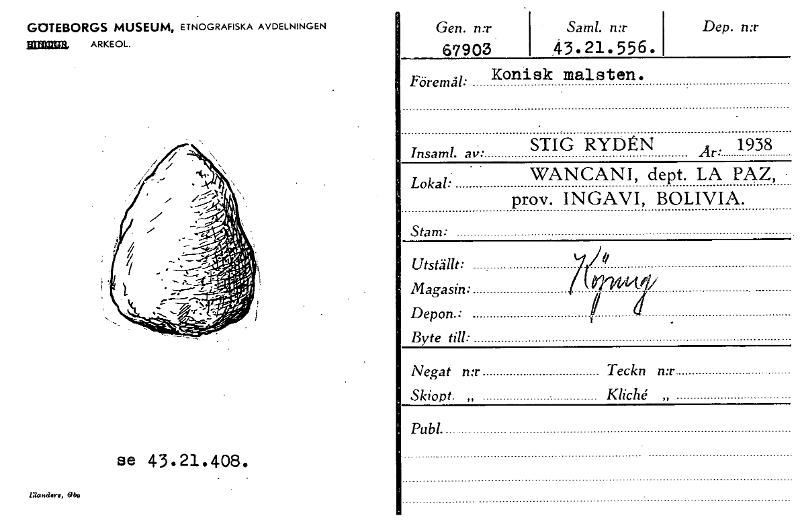 GÖTEBORGS MUSEUM, ETNOGRAFISKA AVDELNINGEN
ARKEOL.
se 43.21.408.
Gen. n:r Saml. n:r Dep. n:r
67903 43.21.556.
Föremål: Konisk malsten.
Insaml. av: STIG RYDÉN År: 1938
Lokal: WANCANI, dept. LA PAZ,
prov. INGAVI, BOLIVIA.
Stam:
Utställt:
Magasin:
Depon.:
Byte till:
Negat n:r Teckn n:r
Skiopt. „ Kliché „
Publ.